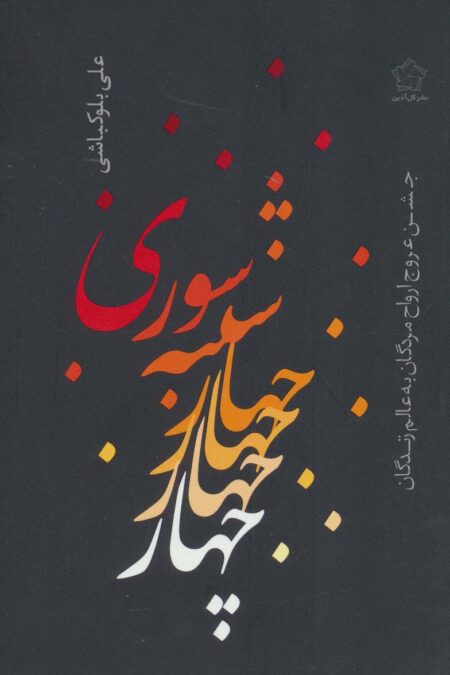 نشر گل‌آذین
علی بلوکباشی
چهار
چهار
چهار
چهار
شنبه
سوری
جشن عروج ارواح مردگان به عالم زندگان